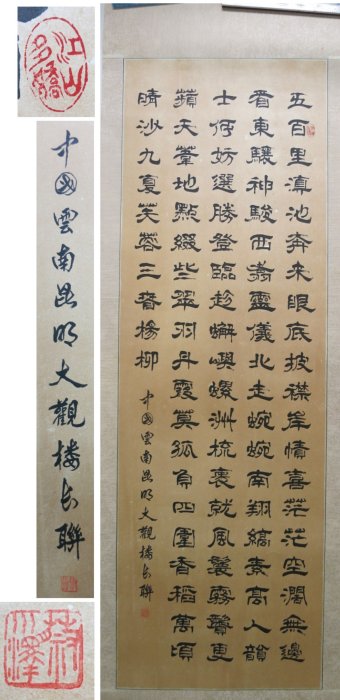 江山多嬌
中國雲南昆明大觀樓長聯
五百里滇池奔来眼底披襟岸幘喜茫茫空濶無邊
看東驤神駿西翥靈儀北走蜿蜒南翔縞素高人韻
士何妨選勝登臨趁蠏嶼螺洲梳裹就風鬟霧鬢更
蘋天葦地點綴些翠羽丹霞莫孤負四圍香稻萬頃
晴沙九夏芙蓉三春楊柳
中國雲南昆明大觀樓長聯